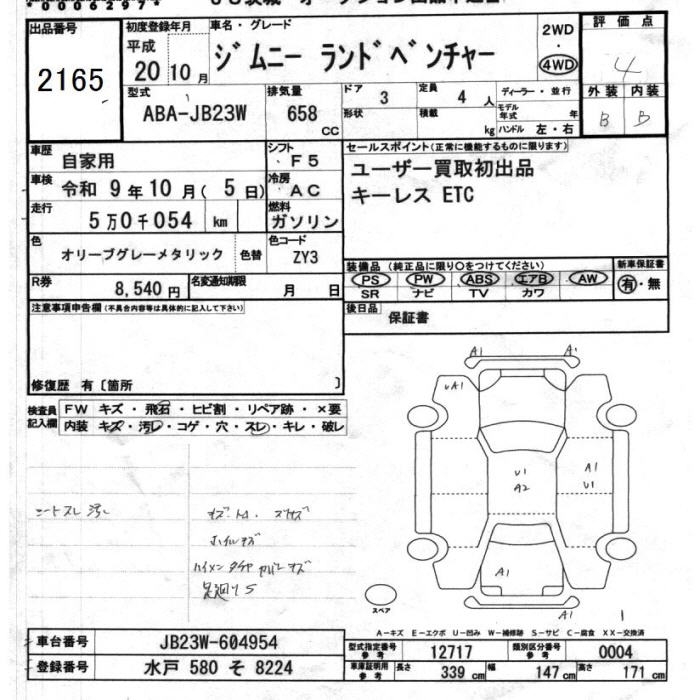 00002974
出品番号
2165
初度登録年月
平成
20 10 月
車名・グレード
ジムニー ランドベンチャー
2WD
・
4WD
評価点
4
外装 内装
B B
型式
ABA-JB23W
排気量
658 CC
ドア
3
定員
4 人
形状
積載
kg
ディーラー・並行
モデル年式 年
ハンドル 左・右
車歴
自家用
シフト
F5
車検
令和 9年10月(5日)
冷房
AC
走行
5万0千054 km
燃料
ガソリン
色
オリーブグレーメタリック
色替
色コード
ZY3
R券
8,540円
名変通知期限
月 日
セールスポイント(正常に機能するものに限ります)
ユーザー買取初出品
キーレス ETC
装備品 (純正品に限り○をつけてください)
PS PW ABS エアB AW
SR ナビ TV カワ
新車保証書
有・無
後日品
保証書
注意事項申告欄(不具合内容等は具体的に記入して下さい)
修復歴 有〔箇所 〕
検査員記入欄
FW キズ・飛石・ヒビ割・リペア跡・×要
内装 キズ・汚レ・コゲ・穴・スレ・キレ・破レ
シートスレ 汚レ
ホイルキズ
足廻りS
A1 A1
UA1
U1
A2
A1
U1
A1
A1
1
スペア
A-キズ E-エクボ U-凹み W-補修跡 S-サビ C-腐食 XX-交換済
車台番号
JB23W-604954
登録番号
水戸 580 そ 8224
型式指定番号
参考
12717
類別区分番号
参考
0004
車庫証明用
参考
長さ 339 cm
幅 147 cm
高さ 171 cm